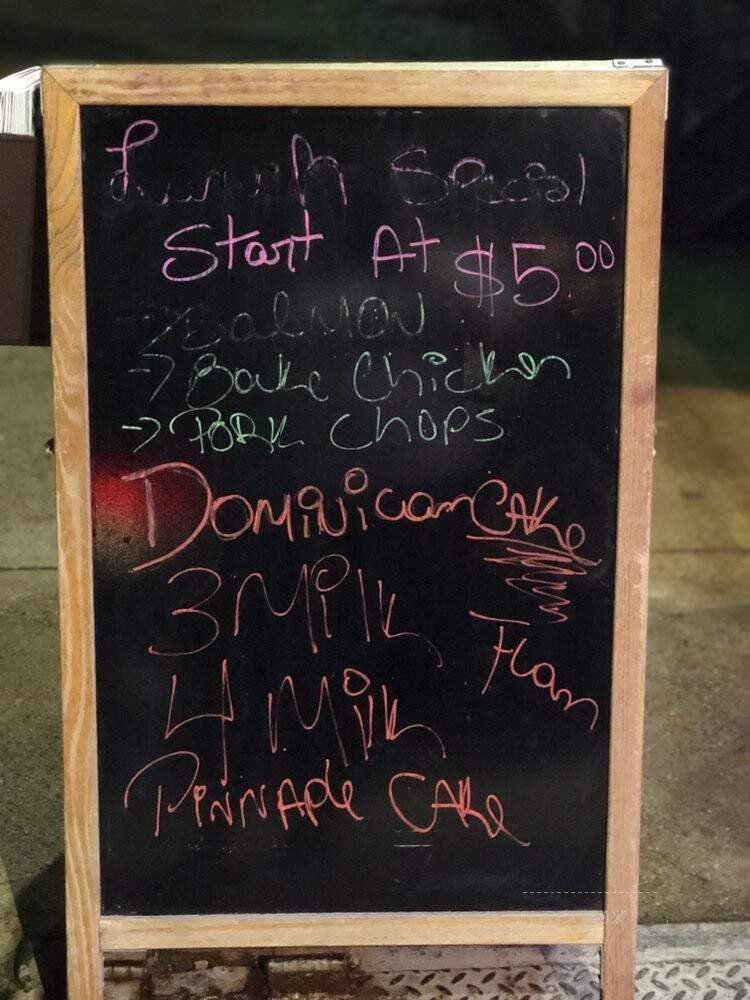 Lunch Special
Start At $5.00
→ Salmon
→ Bake Chicken
→ Pork Chops
Dominican Cake
3 Milk
Flan
4 Milk
Pinnaple Cake